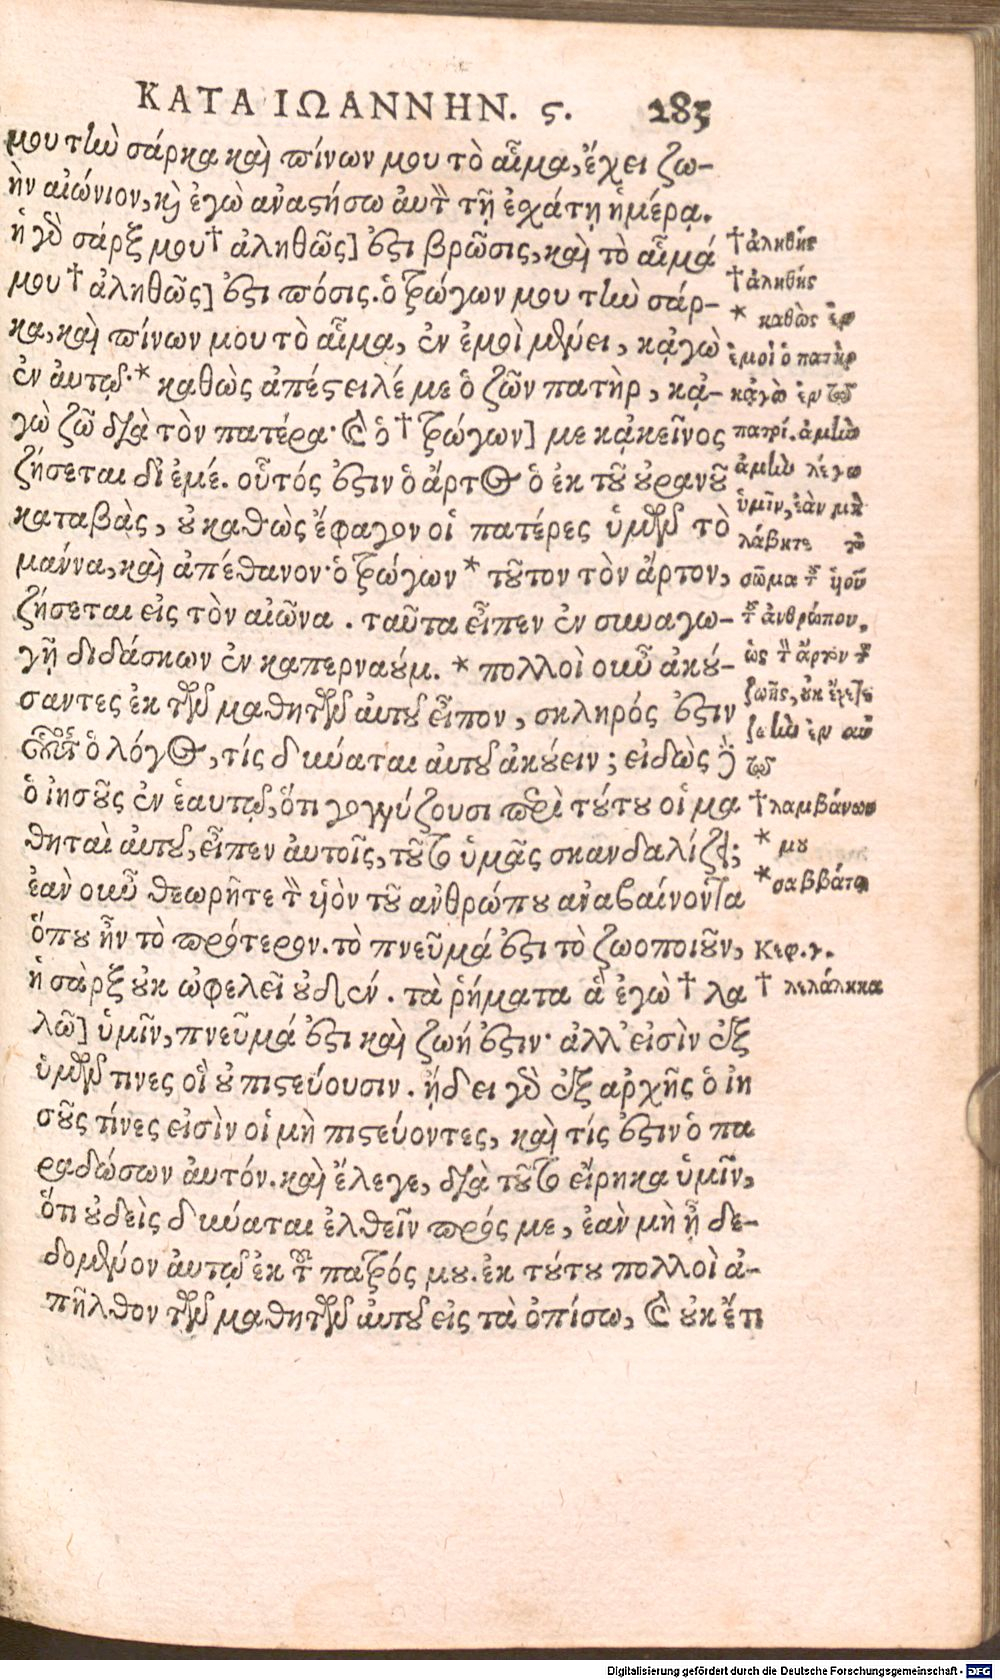 ΚΑΤΑ ΙΩΑΝΝΗΝ. ϛ. 285
μου τὴν σάρκα καὶ πίνων μου τὸ αἷμα, ἔχει ζω-
ὴν αἰώνιον, κὶ ἐγὼ ἀναστήσω αὐτὸν τῇ ἐχάτῃ ἡμέρᾳ.
ἡ γὸ σάρξ μου† ἀληθῶς] ἐστι βρῶσις, καὶ τὸ αἷμά
μου† ἀληθῶς] ἐστι πόσις. ὁ τρώγων μου τὴν σάρ-
κα, καὶ πίνων μου τὸ αἷμα, ἐν ἐμοὶ μένει, κᾀγὼ
ἐν αὐτῷ·* καθὼς ἀπέστειλέ με ὁ ζῶν πατὴρ, κᾀ-
γὼ ζῶ διὰ τὸν πατέρα· καὶ ὁ † τρώγων] με κᾀκεῖνος
ζήσεται δι' ἐμέ. οὗτός ἐστιν ὁ ἄρτος ὁ ἐκ τοῦ οὐρανοῦ
καταβὰς, οὐ καθὼς ἔφαγον οἱ πατέρες ὑμῶν τὸ
μάννα, καὶ ἀπέθανον· ὁ τρώγων * τοῦτον τὸν ἄρτον,
ζήσεται εἰς τὸν αἰῶνα . ταῦτα εἶπεν ἐν συναγω-
γῇ διδάσκων ἐν καπερναούμ. * πολλοὶ οὖν ἀκού-
σαντες ἐκ τῶν μαθητῶν αὐτοῦ εἶπον, σκληρός ἐστιν
οὗτος ὁ λόγος, τίς δύναται αὐτοῦ ἀκούειν; εἰδὼς δὲ
ὁ ἰησοῦς ἐν ἑαυτῷ, ὅτι γογγύζουσι περὶ τούτου οἱ μα
θηταὶ αὐτοῦ, εἶπεν αὐτοῖς, τοῦτο ὑμᾶς σκανδαλίζει;
ἐὰν οὖν θεωρῆτε τὸν υἱὸν τοῦ ἀνθρώπου ἀναβαίνοντα
ὅπου ἦν τὸ πρότερον. τὸ πνεῦμά ἐστι τὸ ζωοποιοῦν,
ἡ σὰρξ οὐκ ὠφελεῖ οὐδέν . τὰ ῥήματα ἃ ἐγὼ † λα
λῶ] ὑμῖν, πνεῦμά ἐστι καὶ ζωή ἐστιν· ἀλλ' εἰσὶν ἐξ
ὑμῶν τινες οἳ οὐ πιστεύουσιν . ᾔδει γὸ ἐξ ἀρχῆς ὁ ἰη
σοῦς τίνες εἰσὶν οἱ μὴ πιστεύοντες, καὶ τίς ἐστιν ὁ πα
ραδώσων αὐτόν. καὶ ἔλεγε, διὰ τοῦτο εἴρηκα ὑμῖν,
ὅτι οὐδεὶς δύναται ἐλθεῖν πρός με, ἐὰν μὴ ᾖ δε-
δομένον αὐτῷ ἐκ τοῦ πατρός μου. ἐκ τούτου πολλοὶ ἀ-
πῆλθον τῶν μαθητῶν αὐτοῦ εἰς τὰ ὀπίσω, καὶ οὐκ ἔτι
†ἀληθής
†ἀληθής
* καθὼς ἐν
ἐμοὶ ὁ πατὴρ
κᾀγὼ ἐν τῷ
πατρί. ἀμὴν
ἀμὴν λέγω
ὑμῖν, ἐὰν μὴ
λάβητε τὸ
σῶμα τοῦ υἱοῦ
τοῦ ἀνθρώπου,
ὡς τὸν ἄρτον τῆς
ζωῆς, οὐκ ἔχετε
ζωὴν ἐν αὐ
τῷ
†λαμβάνων
* μου
*σαββάτῳ
Κεφ. γ.
† λελάληκα
Digitalisierung gefördert durch die Deutsche Forschungsgemeinschaft - DFG